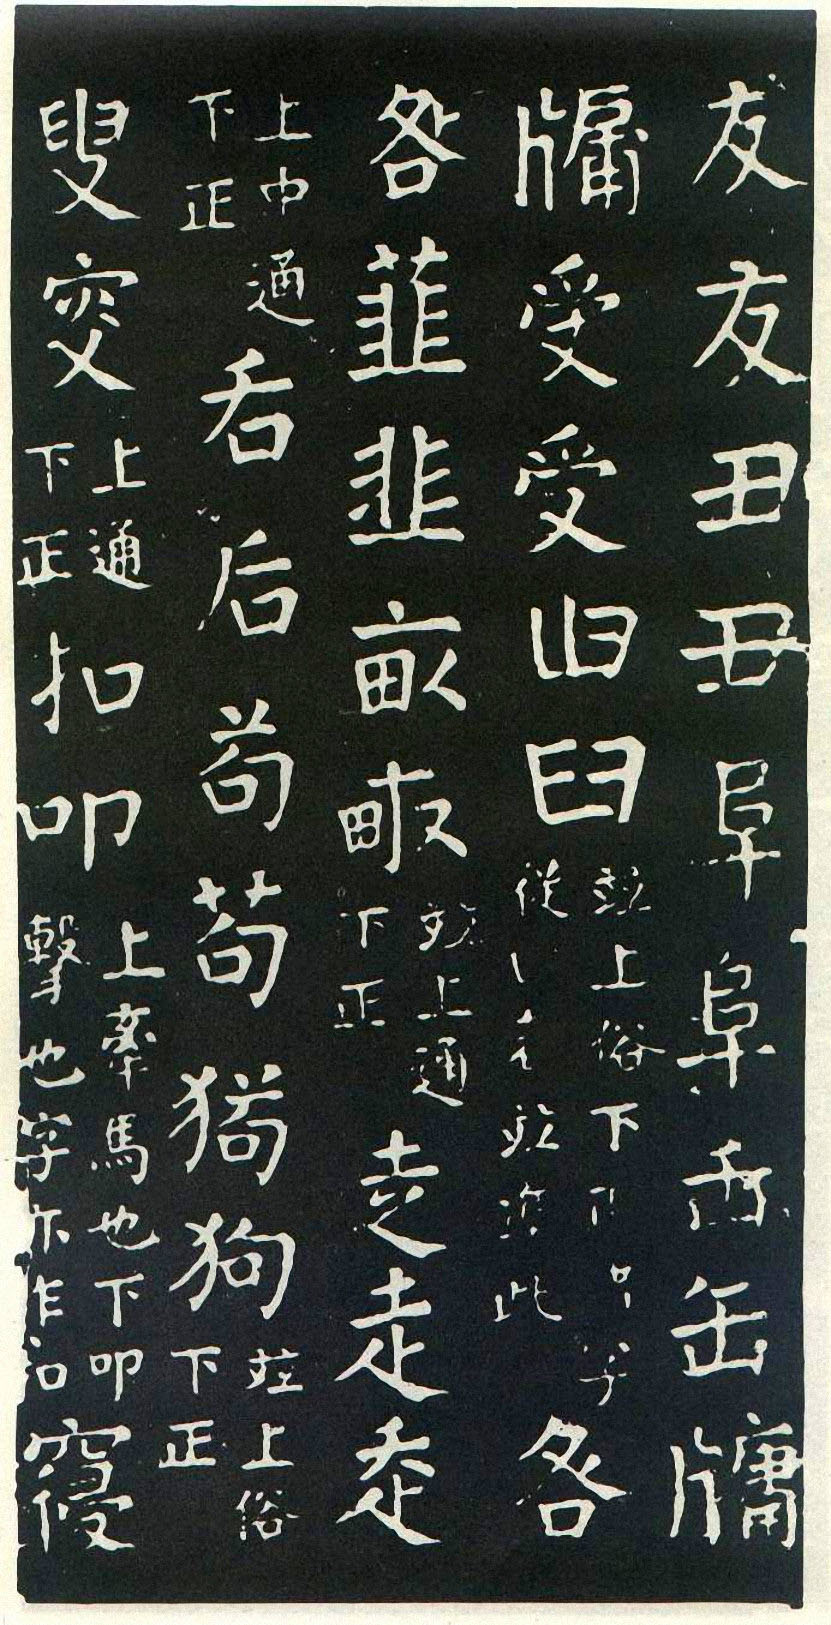 友友丑丑阜阜缶缶牗
牖受受臼臼並上俗下字從並准此各
咎韮韭畝畞並上通下正走走赱
上中通下正后后苟苟狗狗並上俗下正
叟叜上通下正扣叩上牽馬也下叩擊也字亦作扣寑